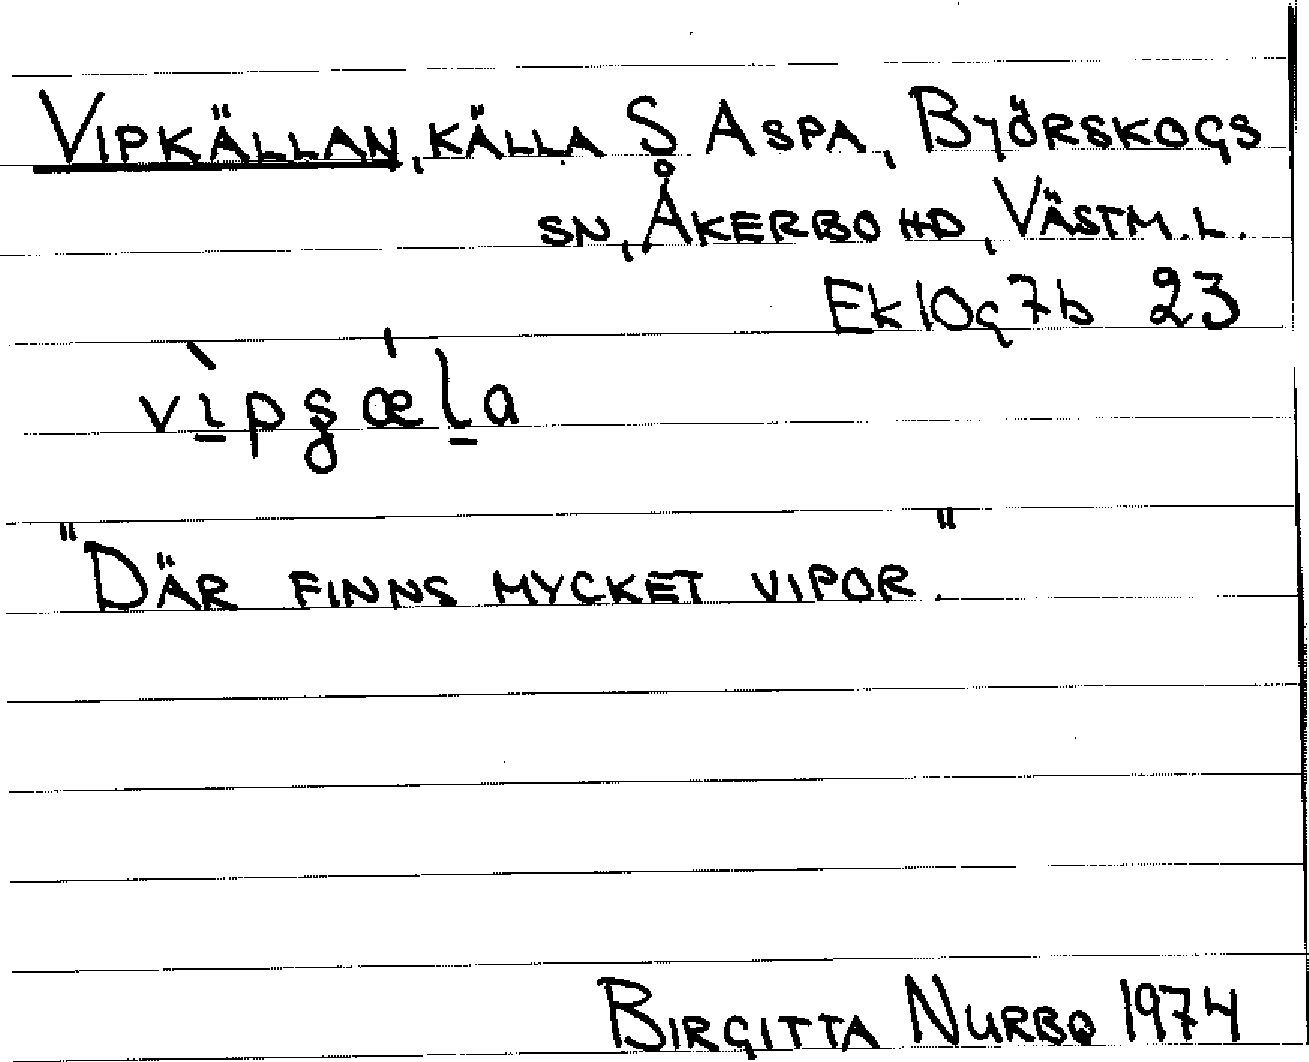 VIPKÄLLAN, KÄLLA S ASPA, BYÖRSKOGS
SN, ÅKERBO HD, VÄSTM.L.
Ek 10g 7b 23
"DÄR FINNS MYCKET VIPOR."
BIRGITTA NURBO 1974